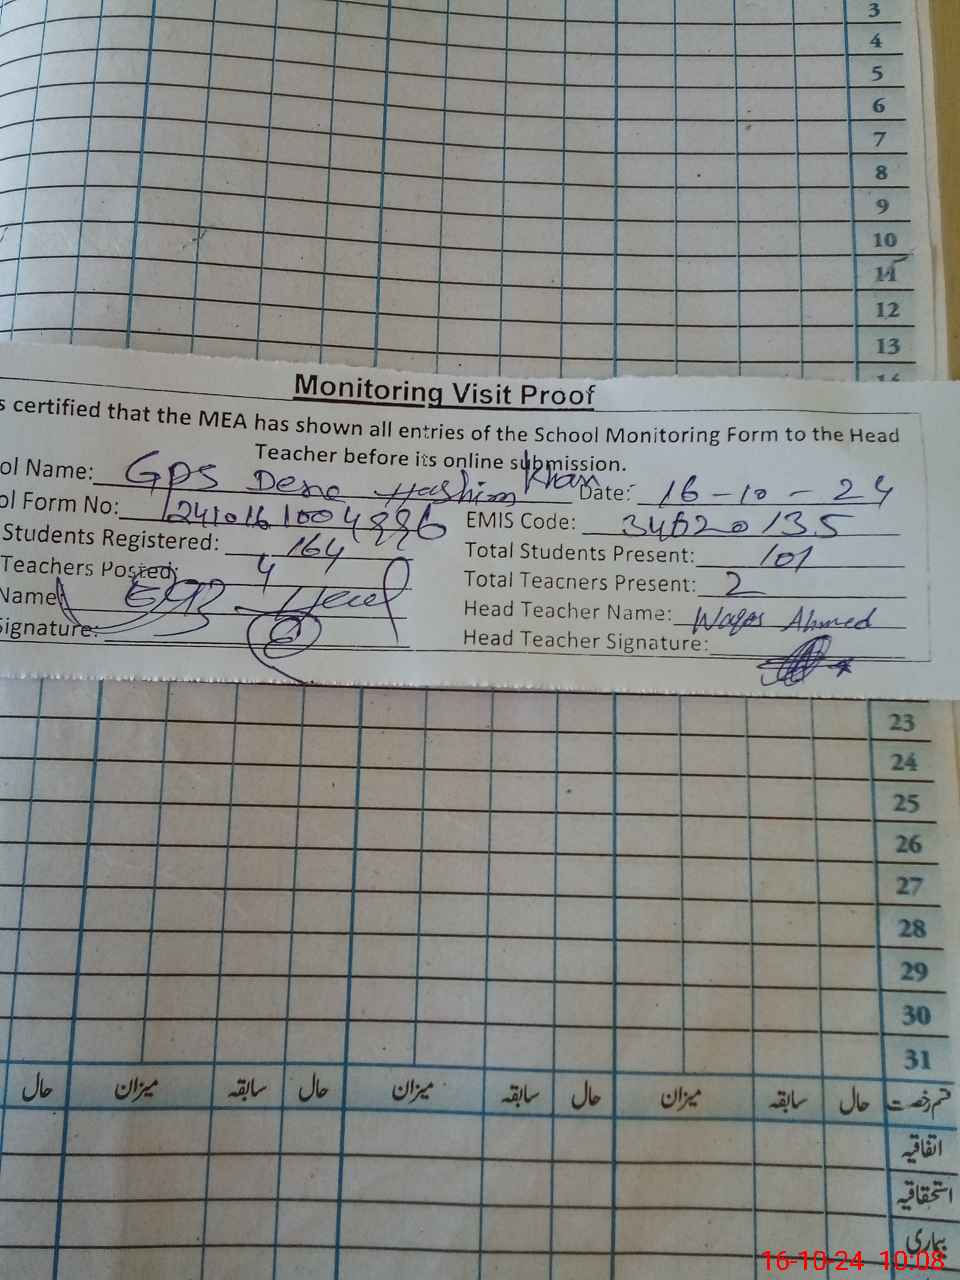 3
4
5
6
7
8
9
10
11
12
13
Monitoring Visit Proof
s certified that the MEA has shown all entries of the School Monitoring Form to the Head
Teacher before its online submission.
ol Name: GPS Dera Hashim Khan Date: 16-10-24
ol Form No: EMIS Code: 34620135
Students Registered: 164 Total Students Present: 101
Teachers Posted: 4 Total Teachers Present: 2
Name Head Teacher Name: Waqas Ahmed
Signature: Head Teacher Signature:
23
24
25
26
27
28
29
30
31
قسم رخصت حال سابقہ میزان حال سابقہ میزان حال سابقہ میزان حال
اتفاقیہ
استحقاقیہ
بیماری
16-10-24 10:08